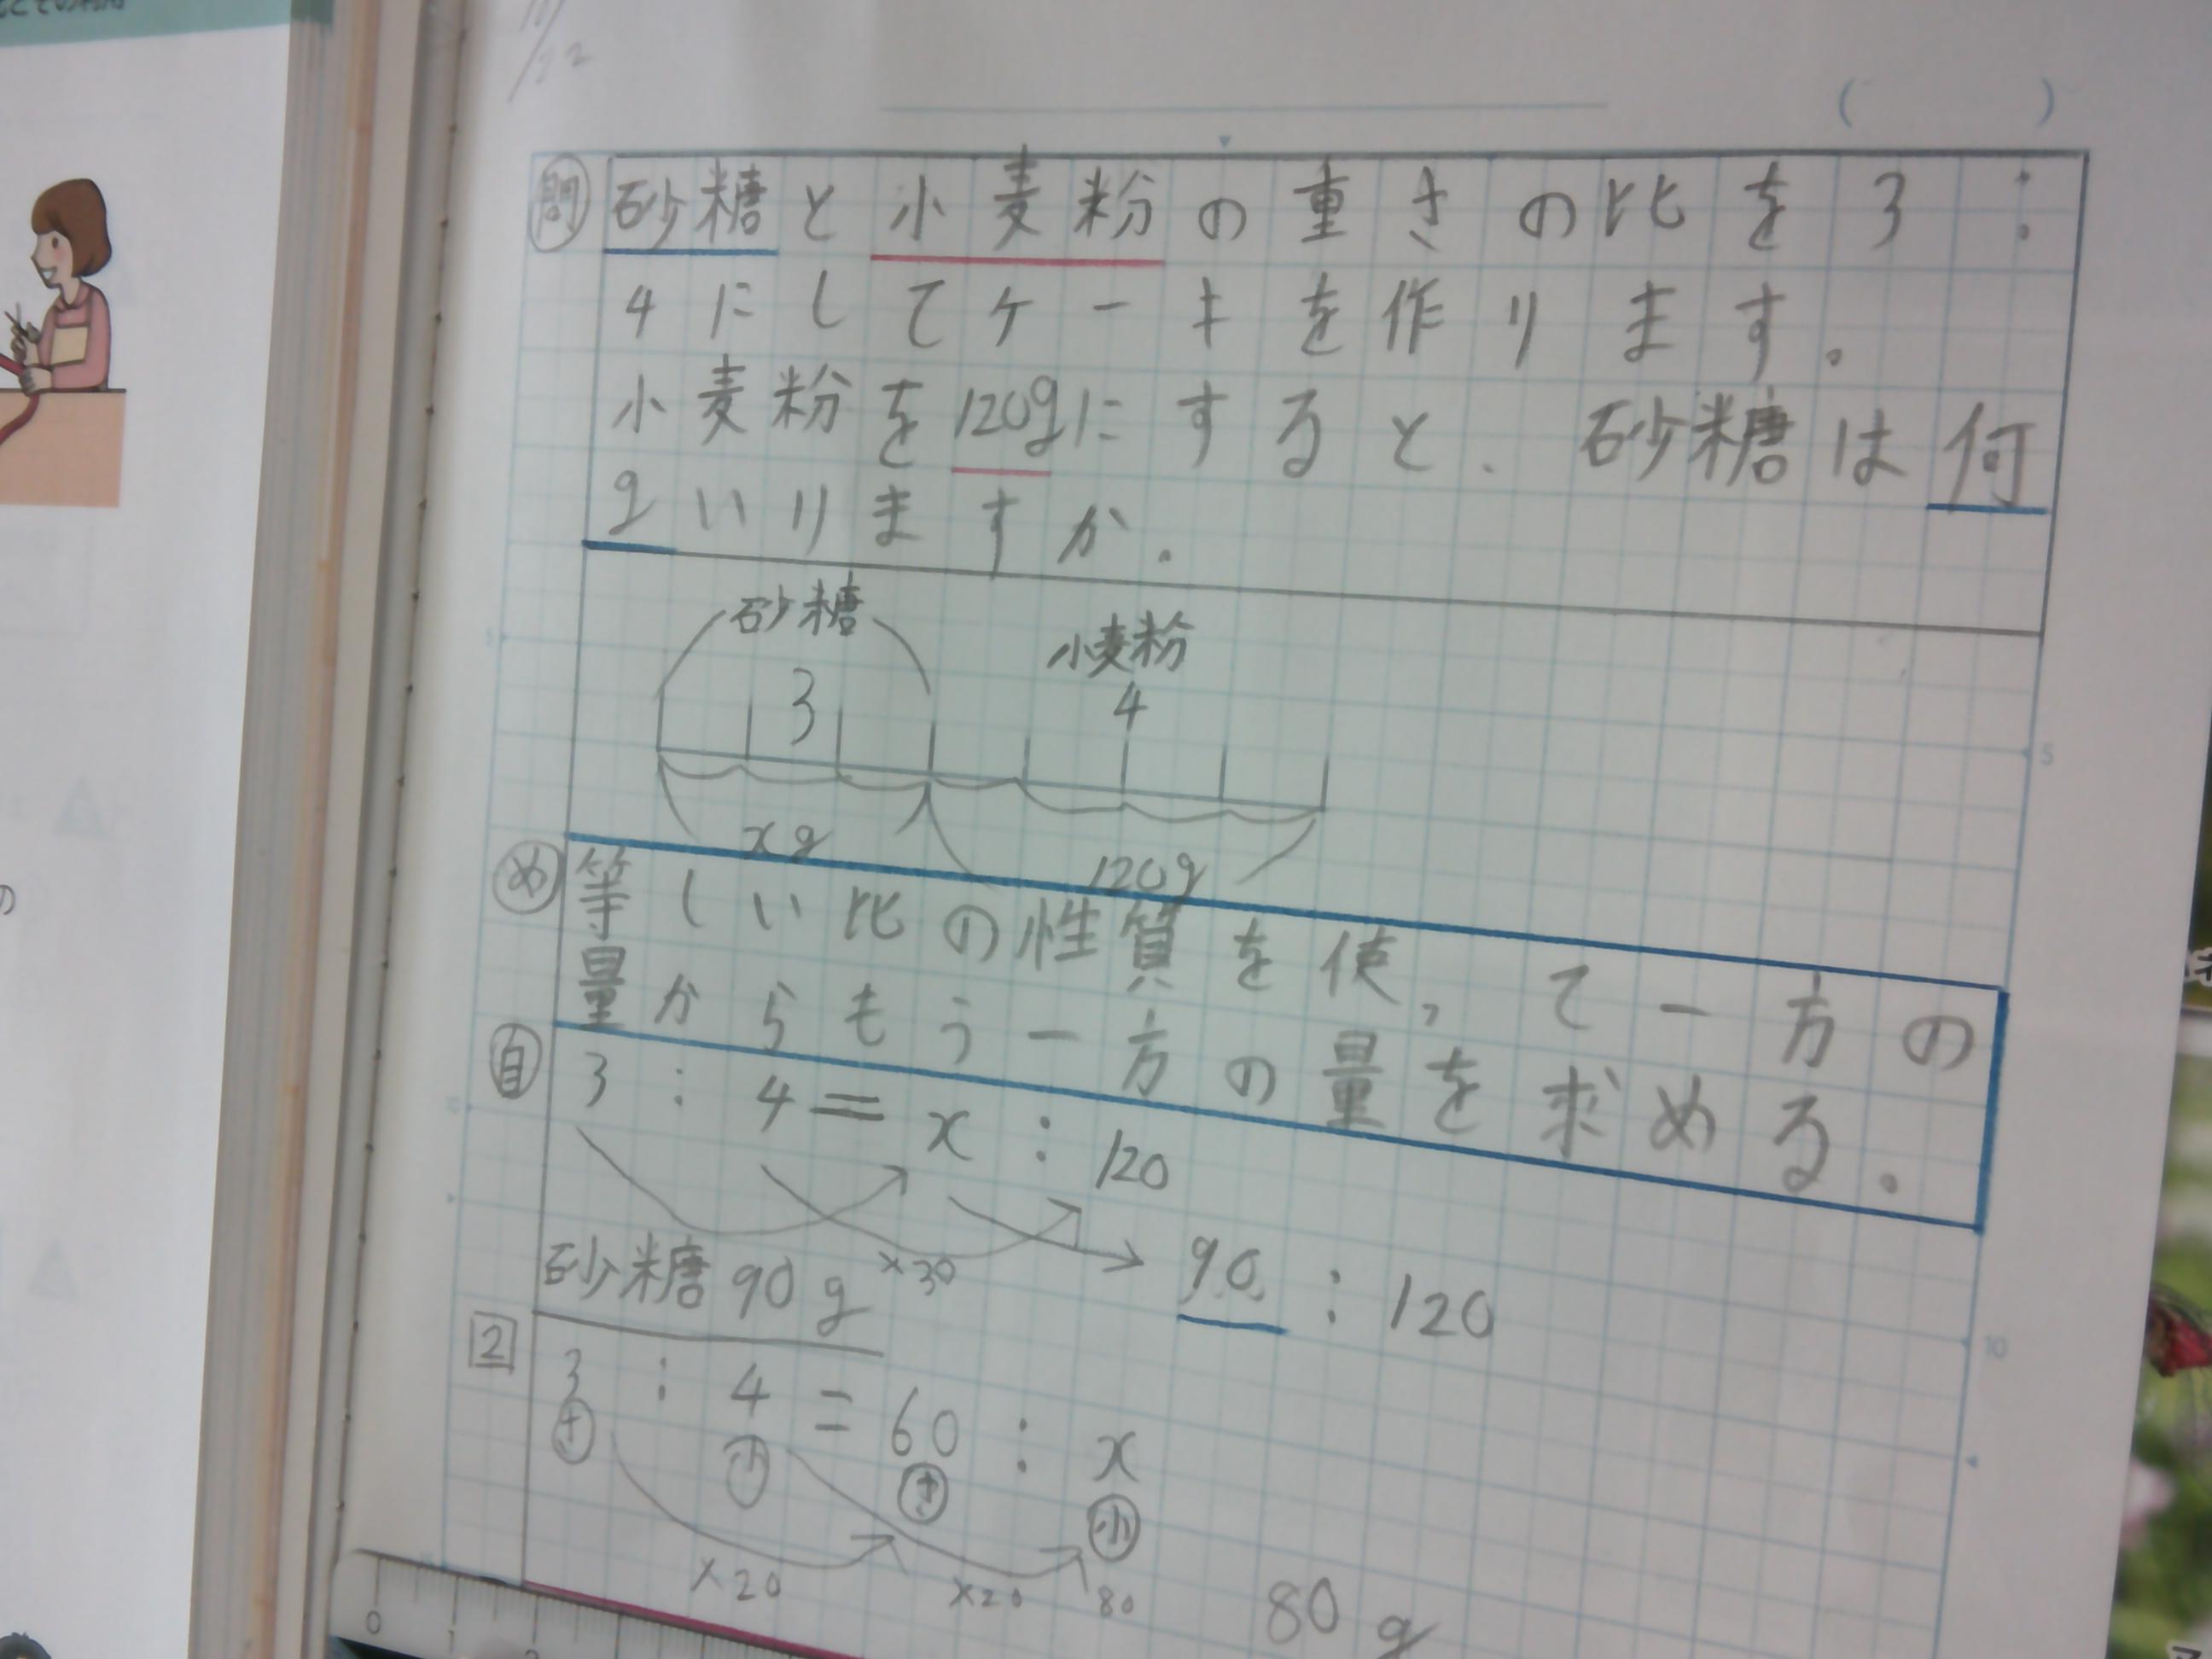 11/22
問 砂糖と小麦粉の重さの比を3:
4にしてケーキを作ります。
小麦粉を120gにすると、砂糖は何
gいりますか。
砂糖 小麦粉
3 4
xg 120g
め 等しい比の性質を使って一方の
量からもう一方の量を求める。
自 3:4=x:120
×30 90:120
砂糖90g
2 3:4=60:x
小
×20 ×20 80 80g
0 1 2
5
10
の